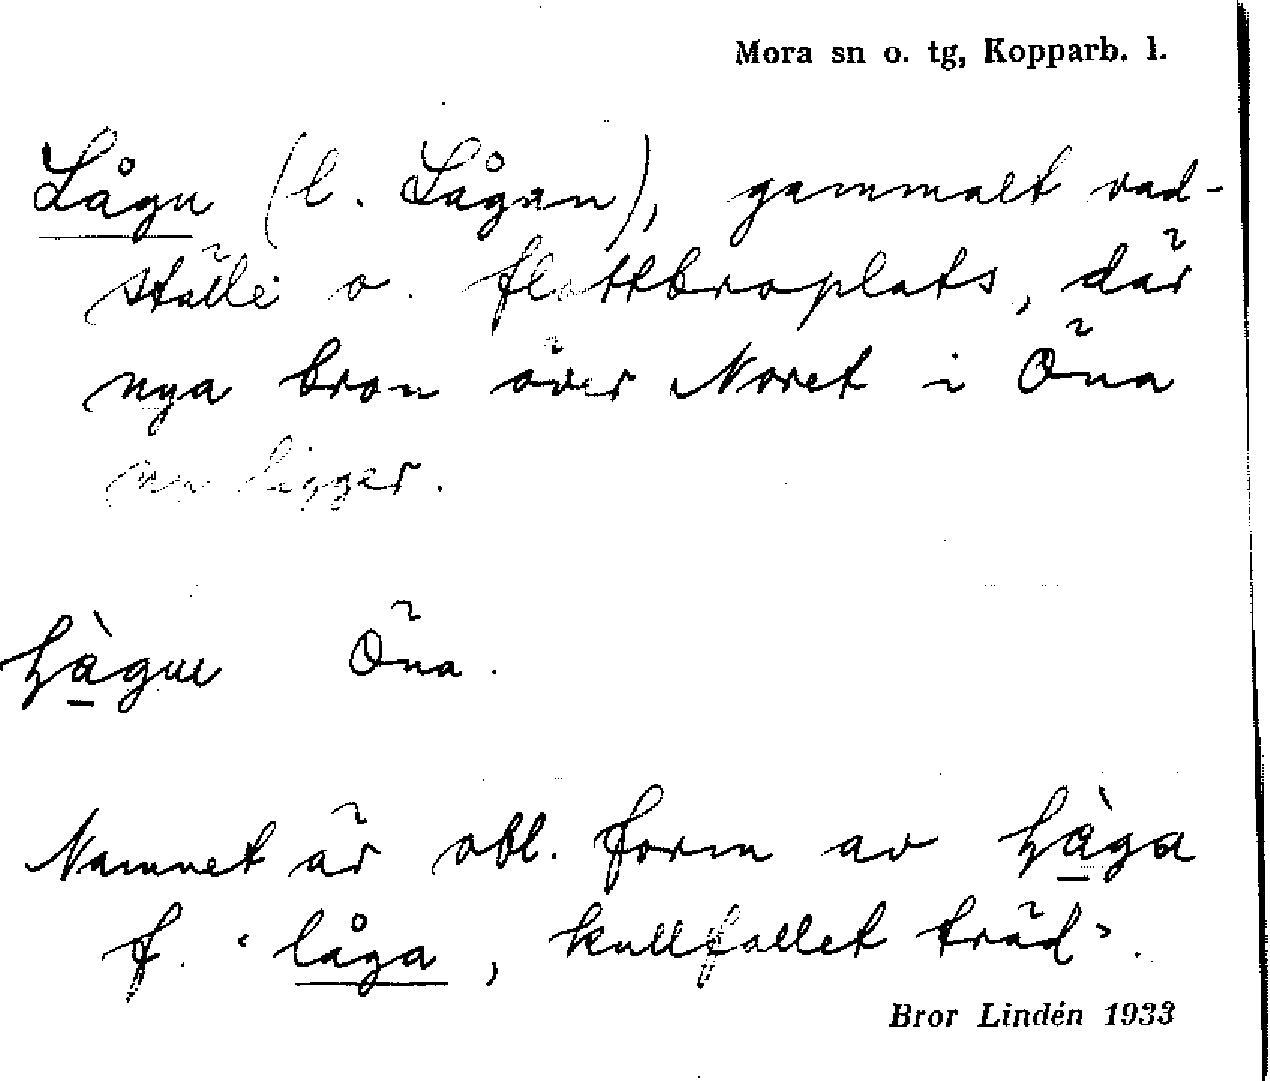 Mora sn o. tg, Kopparb. l.
Lågu (l. Lågan), gammalt vad-
ställe o. flottbroplats, där
nya bron över Noret i Öna
nu ligger.
Öna.
Namnet är obl. form av
f. "låga, kullfallet träd".
Bror Lindén 1933